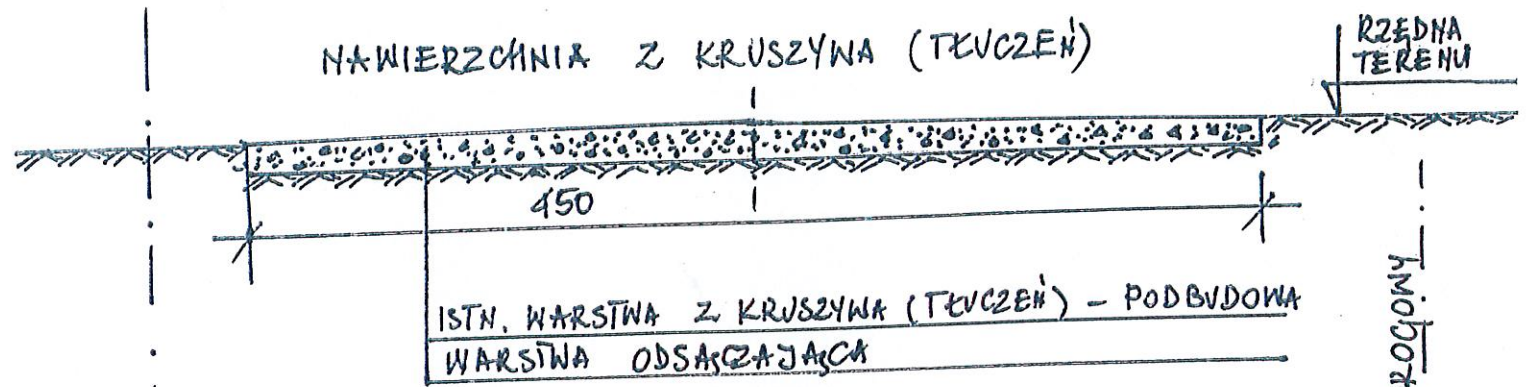 NAWIERZCHNIA Z KRUSZYWA (TŁUCZEŃ)
RZĘDNA
TERENU
450
ISTN. WARSTWA Z KRUSZYWA (TŁUCZEŃ) - PODBUDOWA
WARSTWA ODSĄCZAJĄCA